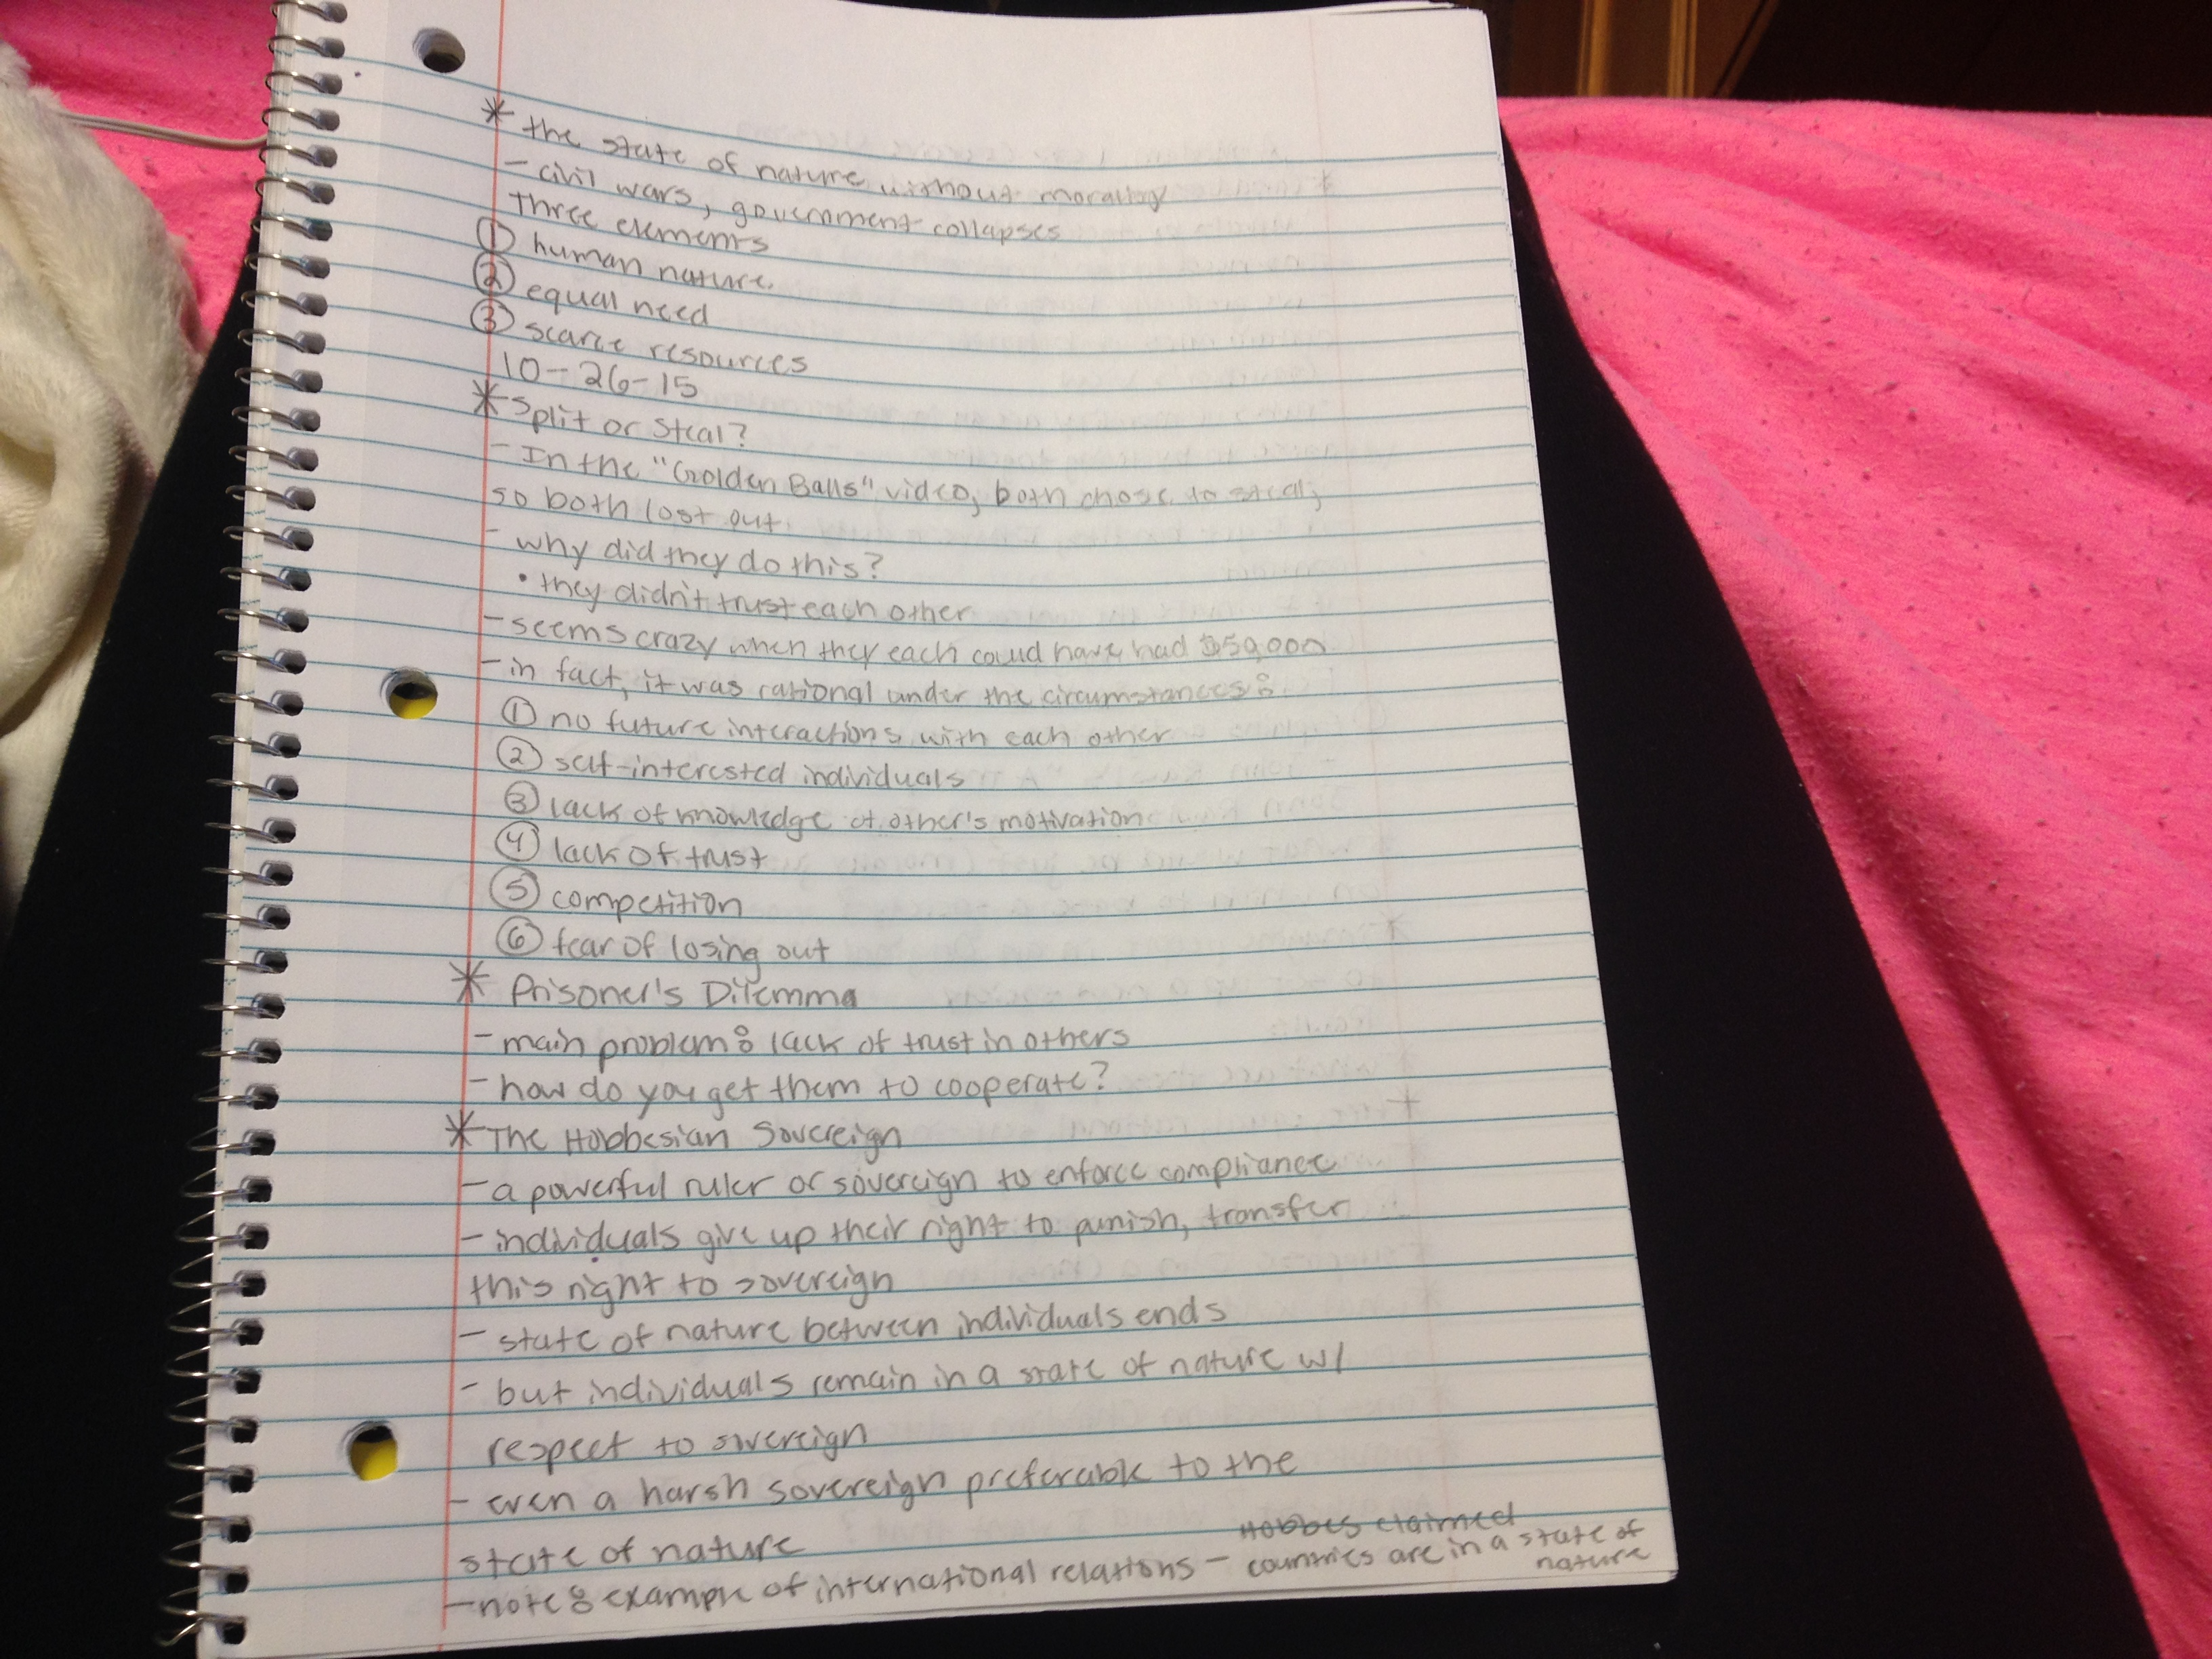 * the state of nature without morality
- civil wars, government collapses
Three elements
① human nature.
② equal need
③ scarce resources
10-26-15
* Split or Steal?
- In the "Golden Balls" video, both chose to steal,
so both lost out.
- why did they do this?
• they didn't trust each other
- seems crazy when they each could have had $50,000
- in fact, it was rational under the circumstances:
① no future interactions with each other
② self-interested individuals
③ lack of knowledge of other's motivation
④ lack of trust
⑤ competition
⑥ fear of losing out
* Prisoner's Dilemma
- main problem: lack of trust in others
- how do you get them to cooperate?
* The Hobbesian Sovereign
- a powerful ruler or sovereign to enforce compliance
- individuals give up their right to punish, transfer
this right to sovereign
- state of nature between individuals ends
- but individuals remain in a state of nature w/
respect to sovereign
- even a harsh sovereign preferable to the
state of nature
- note: example of international relations - Hobbes claimed
countries are in a state of
nature